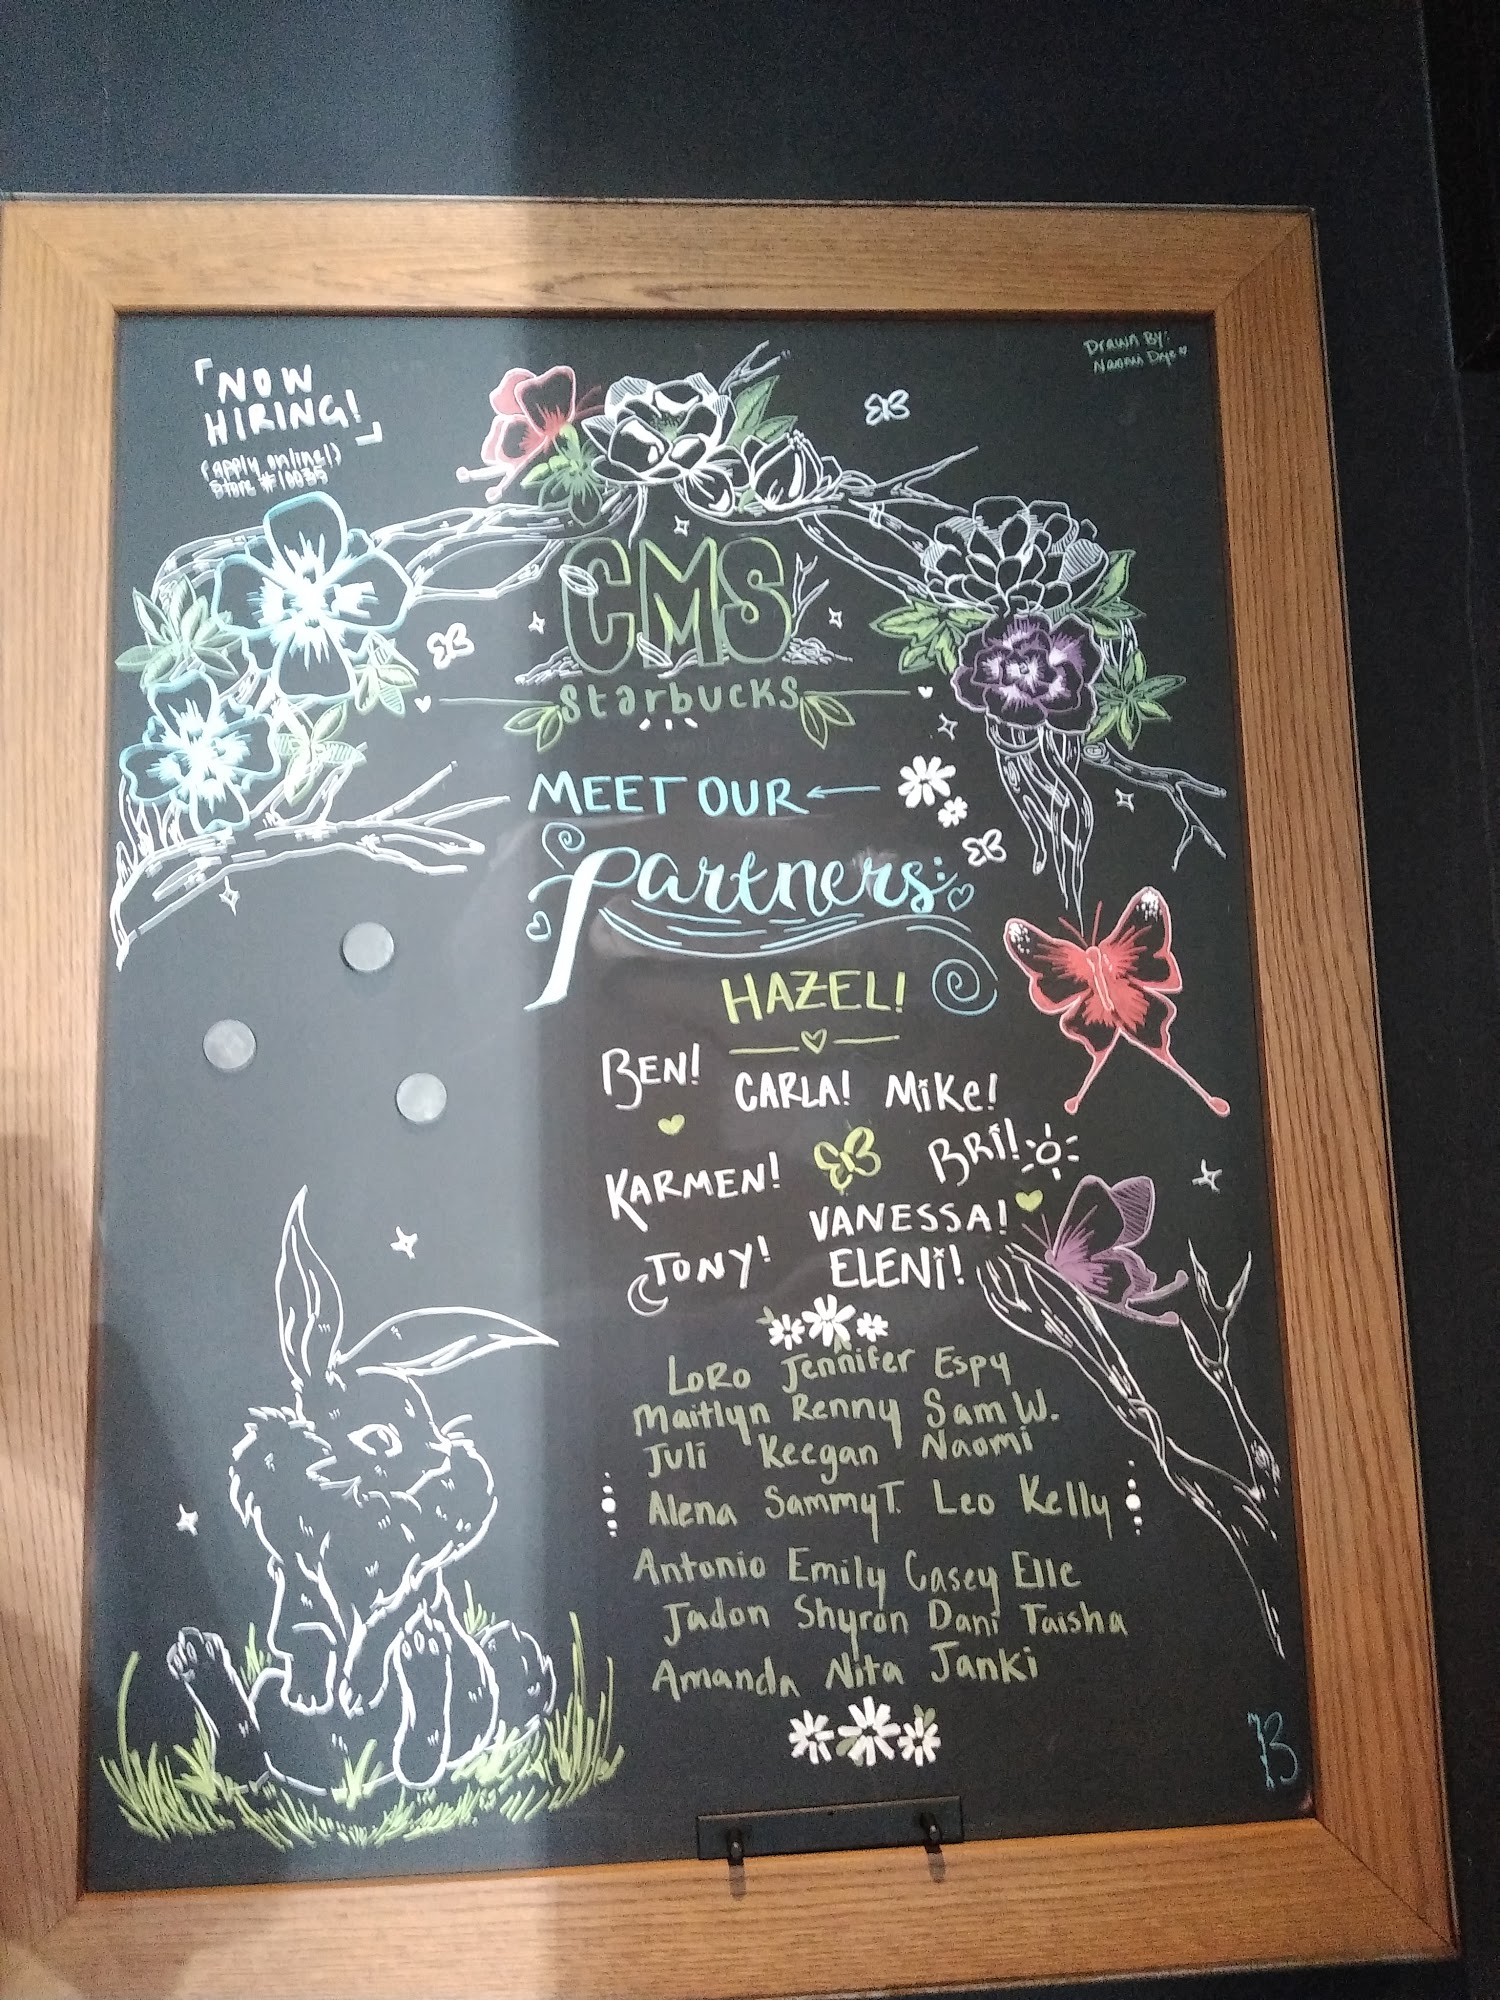 NOW
HIRING!
(apply online!)
Store #10035
Drawn By:
Naomi Dye
CMS
Starbucks
MEET OUR
Partners:
HAZEL!
BEN! CARLA! MiKe!
KARMEN! BRi!
VANESSA!
TONY! ELENi!
LORO Jennifer Espy
Maitlyn Renny Sam W.
Juli Keegan Naomi
Alena Sammy T. Leo Kelly
Antonio Emily Casey Elle
Jadon Shyron Dani Taisha
Amanda Nita Janki